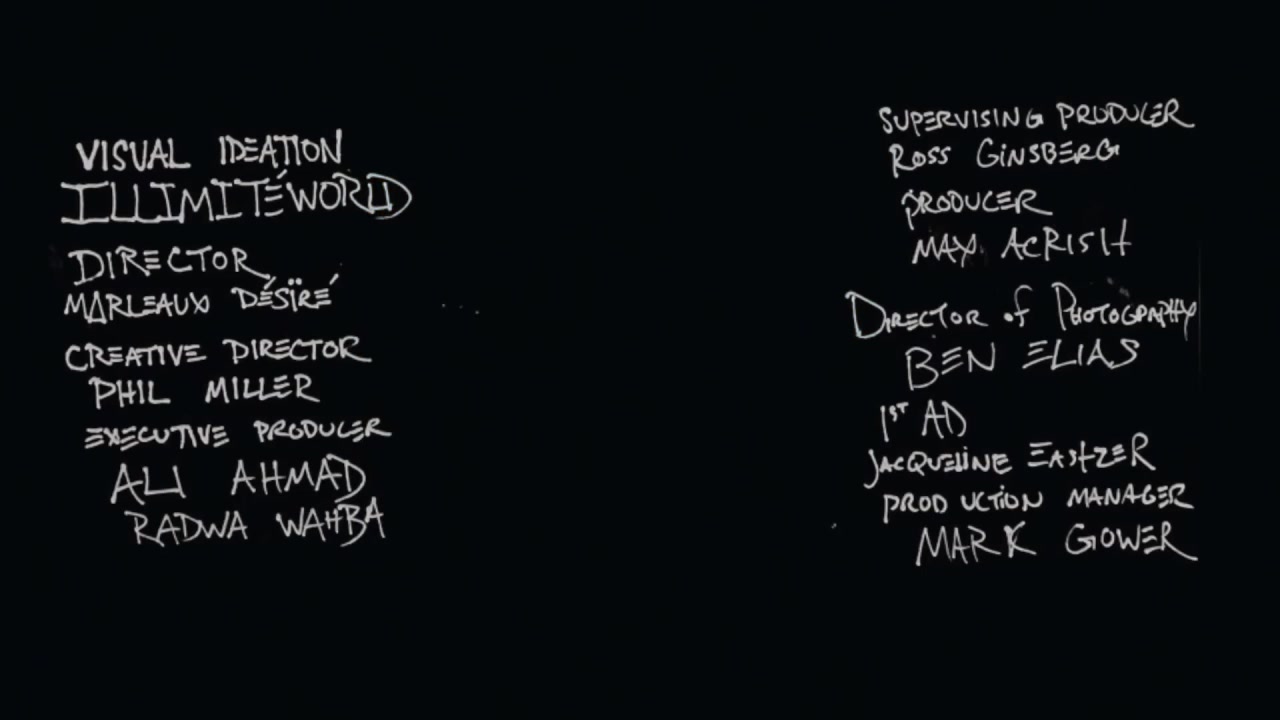 VISUAL IDEATION
ILLIMITÉWORLD
DIRECTOR
MARLEAUX DÉSÏRÉ
CREATIVE DIRECTOR
PHIL MILLER
EXECUTIVE PRODUCER
ALI AHMAD
RADWA WAHBA
SUPERVISING PRODUCER
ROSS GINSBERG
PRODUCER
MAX ACRISH
DIRECTOR of PHOTOGRAPHY
BEN ELIAS
1ST AD
JACQUELINE EASTZER
PRODUCTION MANAGER
MARK GOWER